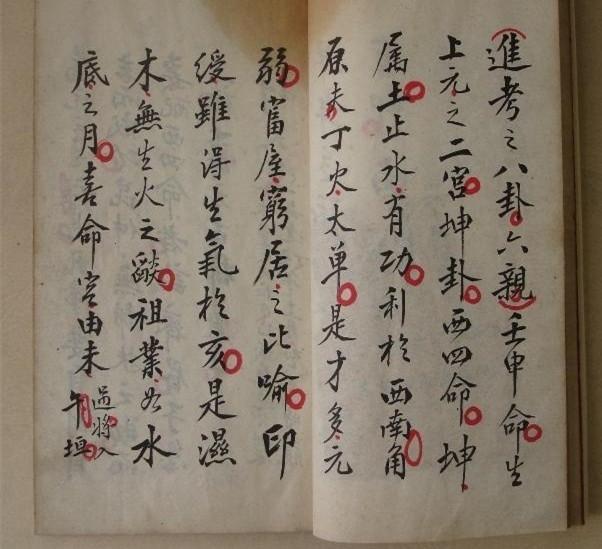 進考之八卦六親壬申命生
上元之二宮坤卦西四命坤
属土止水有功利於西南角
辰未丁火太单是才多元
弱富屋窮居之比喻印
绶雖得生氣於亥是濕
木無生火之燄祖業如水
底之月喜命宮由未過將入
午垣